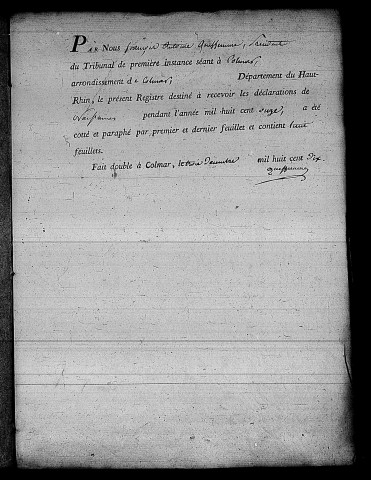 PAR Nous Antoine Queffemme, Président
du Tribunal de première instance séant à Colmar,
arrondissement de Colmar, Département du Haut-
Rhin, le présent Registre destiné à recevoir les déclarations de
Naissances pendant l'année mil huit cent onze, a été
cotté et paraphé par premier et dernier feuillets et contient
feuillets.
Fait double à Colmar, le trois Décembre mil huit cent dix.